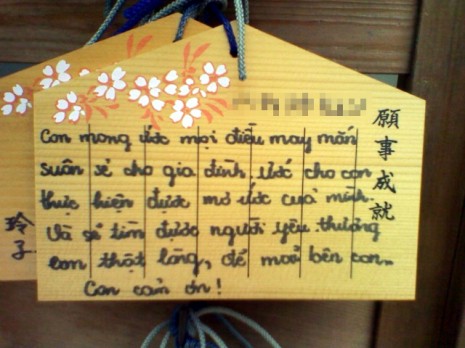 願事成就
Con mong ước mọi điều may mắn
suân sẻ cho gia đình, ước cho con
thực hiện được mơ ước của mình.
Và sẽ tìm được người yêu thương
con thật lòng, để mơi bên con.
Con cảm ơn!
玲子